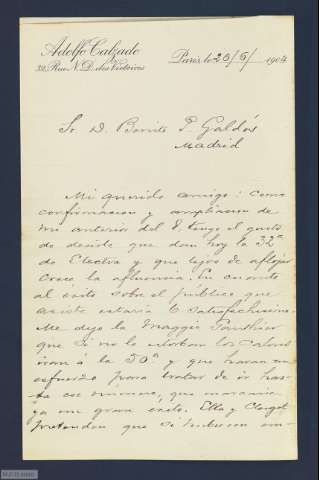 Adolfo Calzado
32, Rue N.D. des Victoires
Paris le 25/5/1904
Sr. D. Benito P. Galdós
Madrid
Mi querido amigo: como
confirmacion y ampliacion de
mi anterior del 8, tengo el gusto
de decirle que dan hoy la 32ª
de Electra y que lejos de aflojar
crece la afluencia. En cuanto
al éxito sobre el público que
asiste estaria V. satisfechisimo.
Me dijo la Maggie Gauthier
que si no lo estorban los calores
iran á la 50ª y que haran un
esfuerzo para tratar de ir has-
ta ese numero, que marcaria
ya un gran exito. Ella y
pretenden que si hubiesen em-